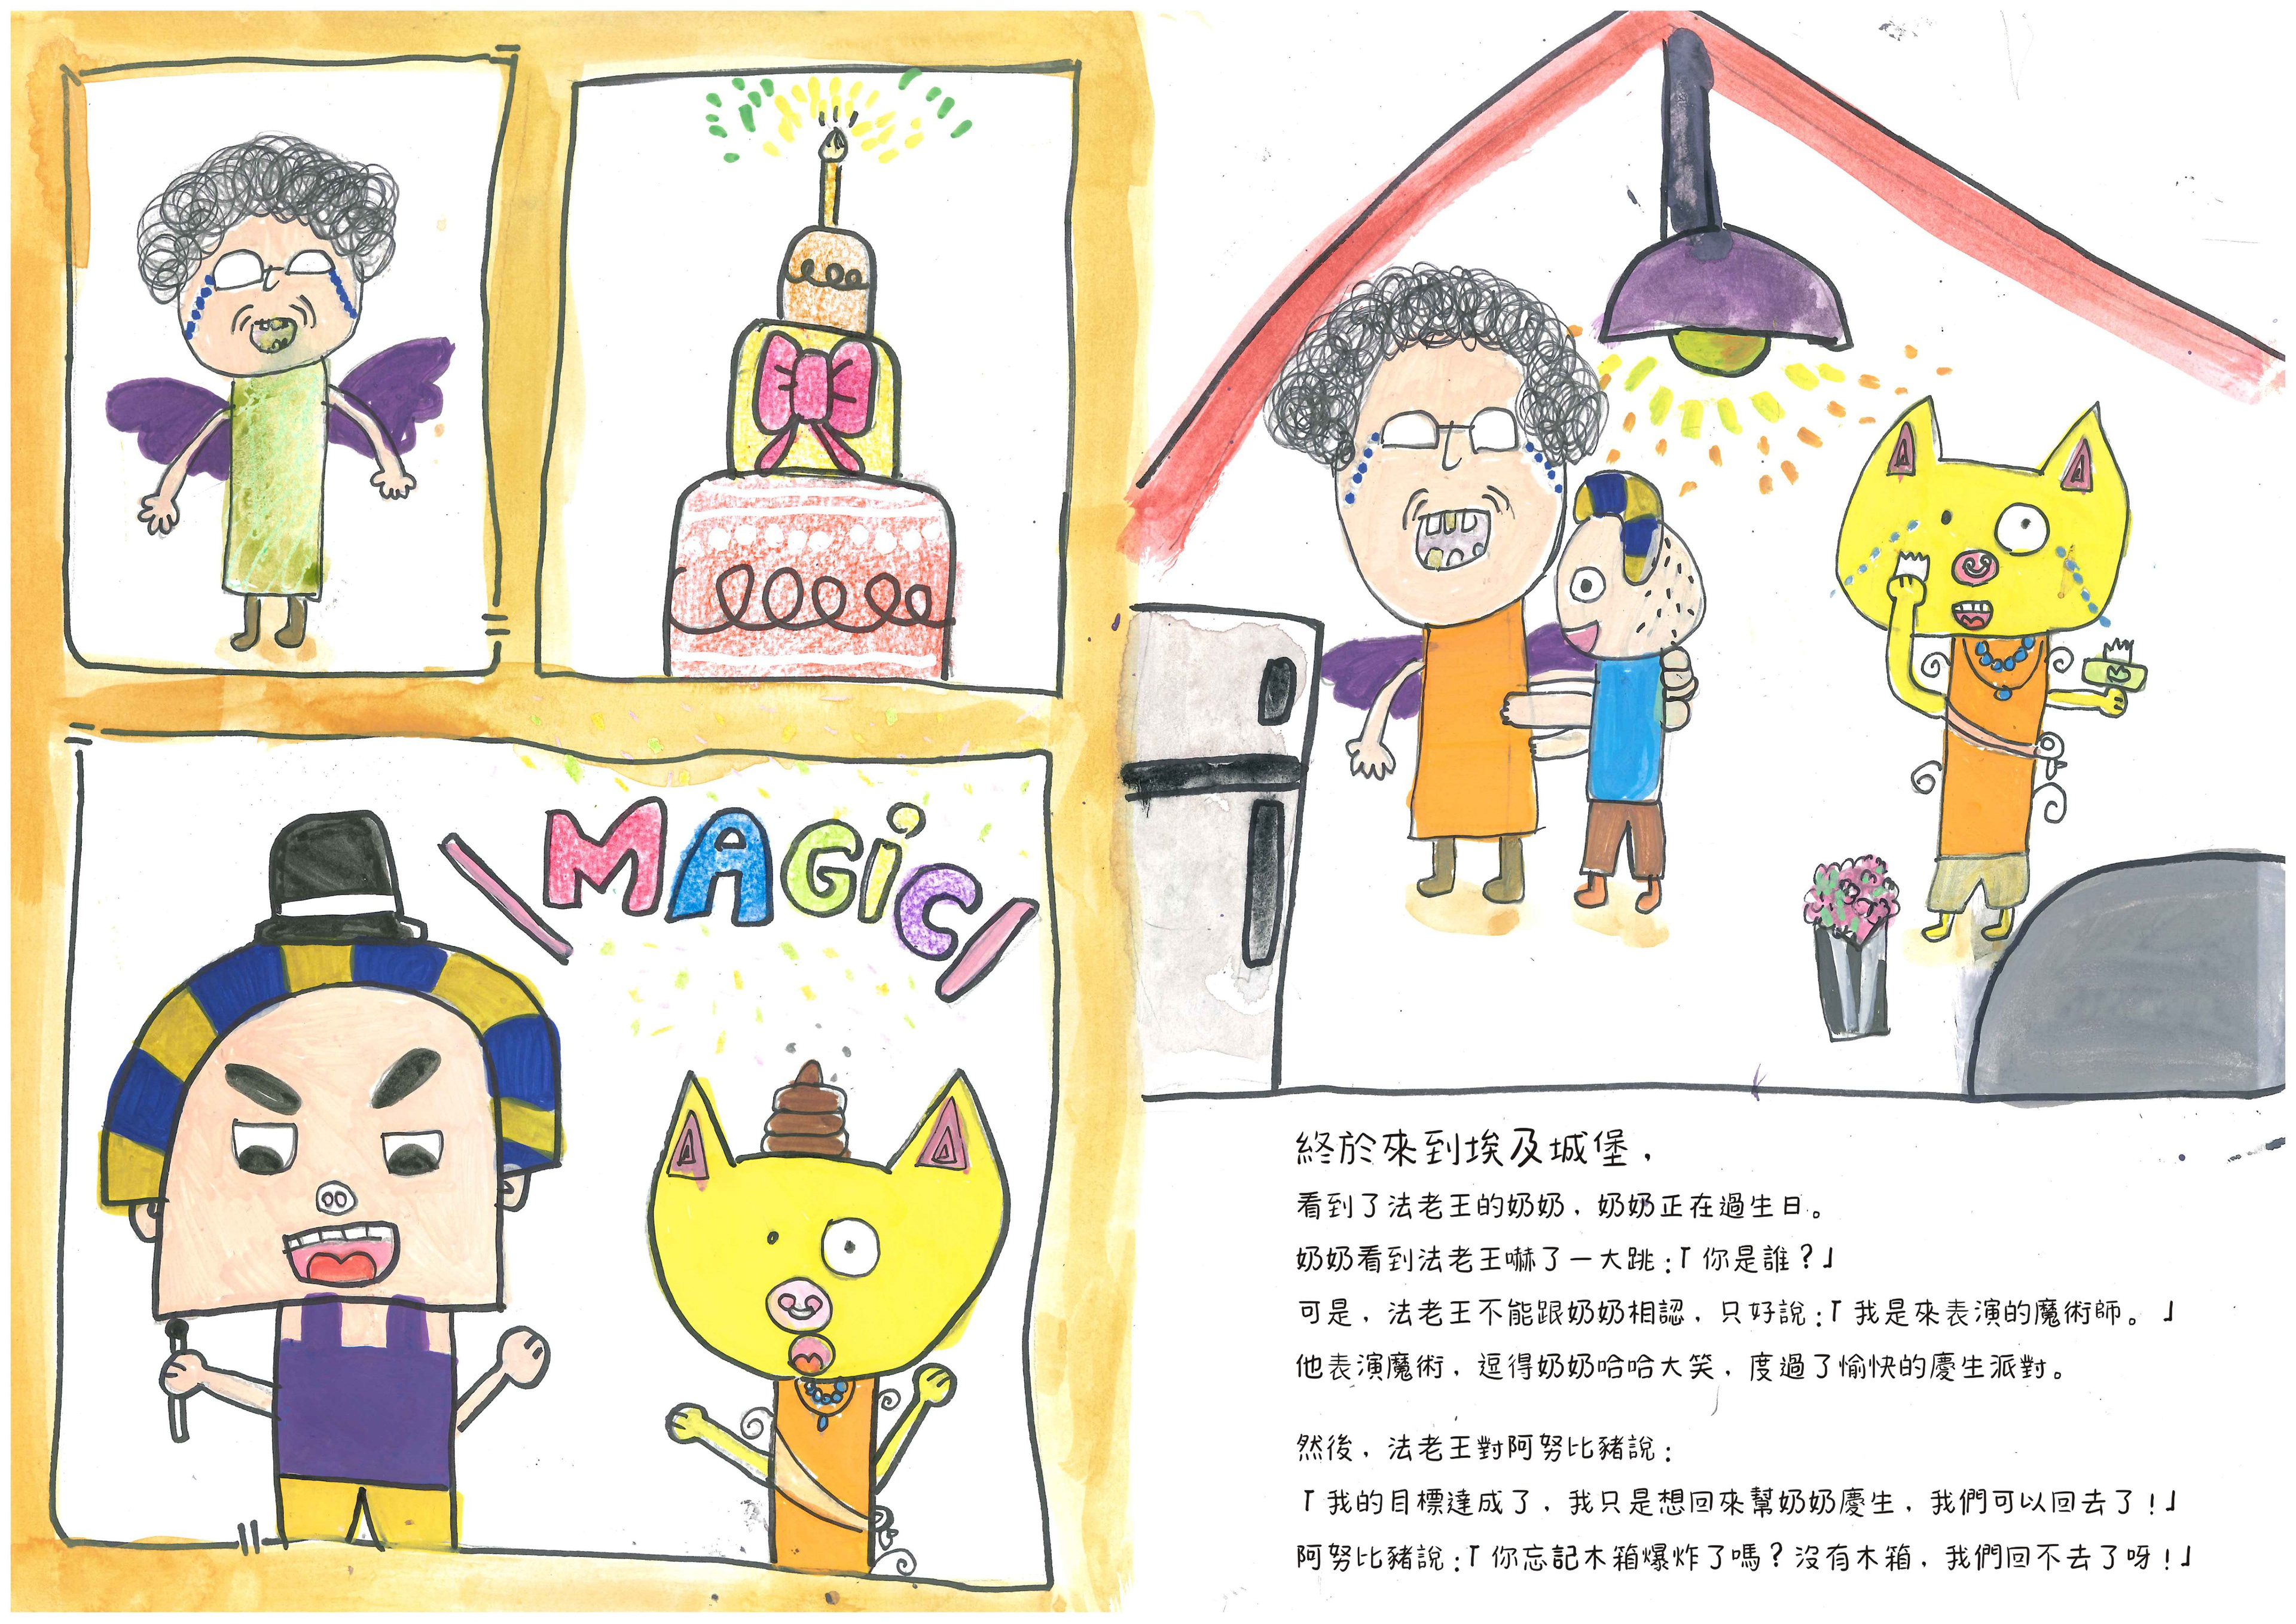 MAGiC
終於來到埃及城堡，
看到了法老王的奶奶，奶奶正在過生日。
奶奶看到法老王嚇了一大跳：「你是誰？」
可是，法老王不能跟奶奶相認，只好說：「我是來表演的魔術師。」
他表演魔術，逗得奶奶哈哈大笑，度過了愉快的慶生派對。
然後，法老王對阿努比豬說：
「我的目標達成了，我只是想回來幫奶奶慶生，我們可以回去了！」
阿努比豬說：「你忘記木箱爆炸了嗎？沒有木箱，我們回不去了呀！」